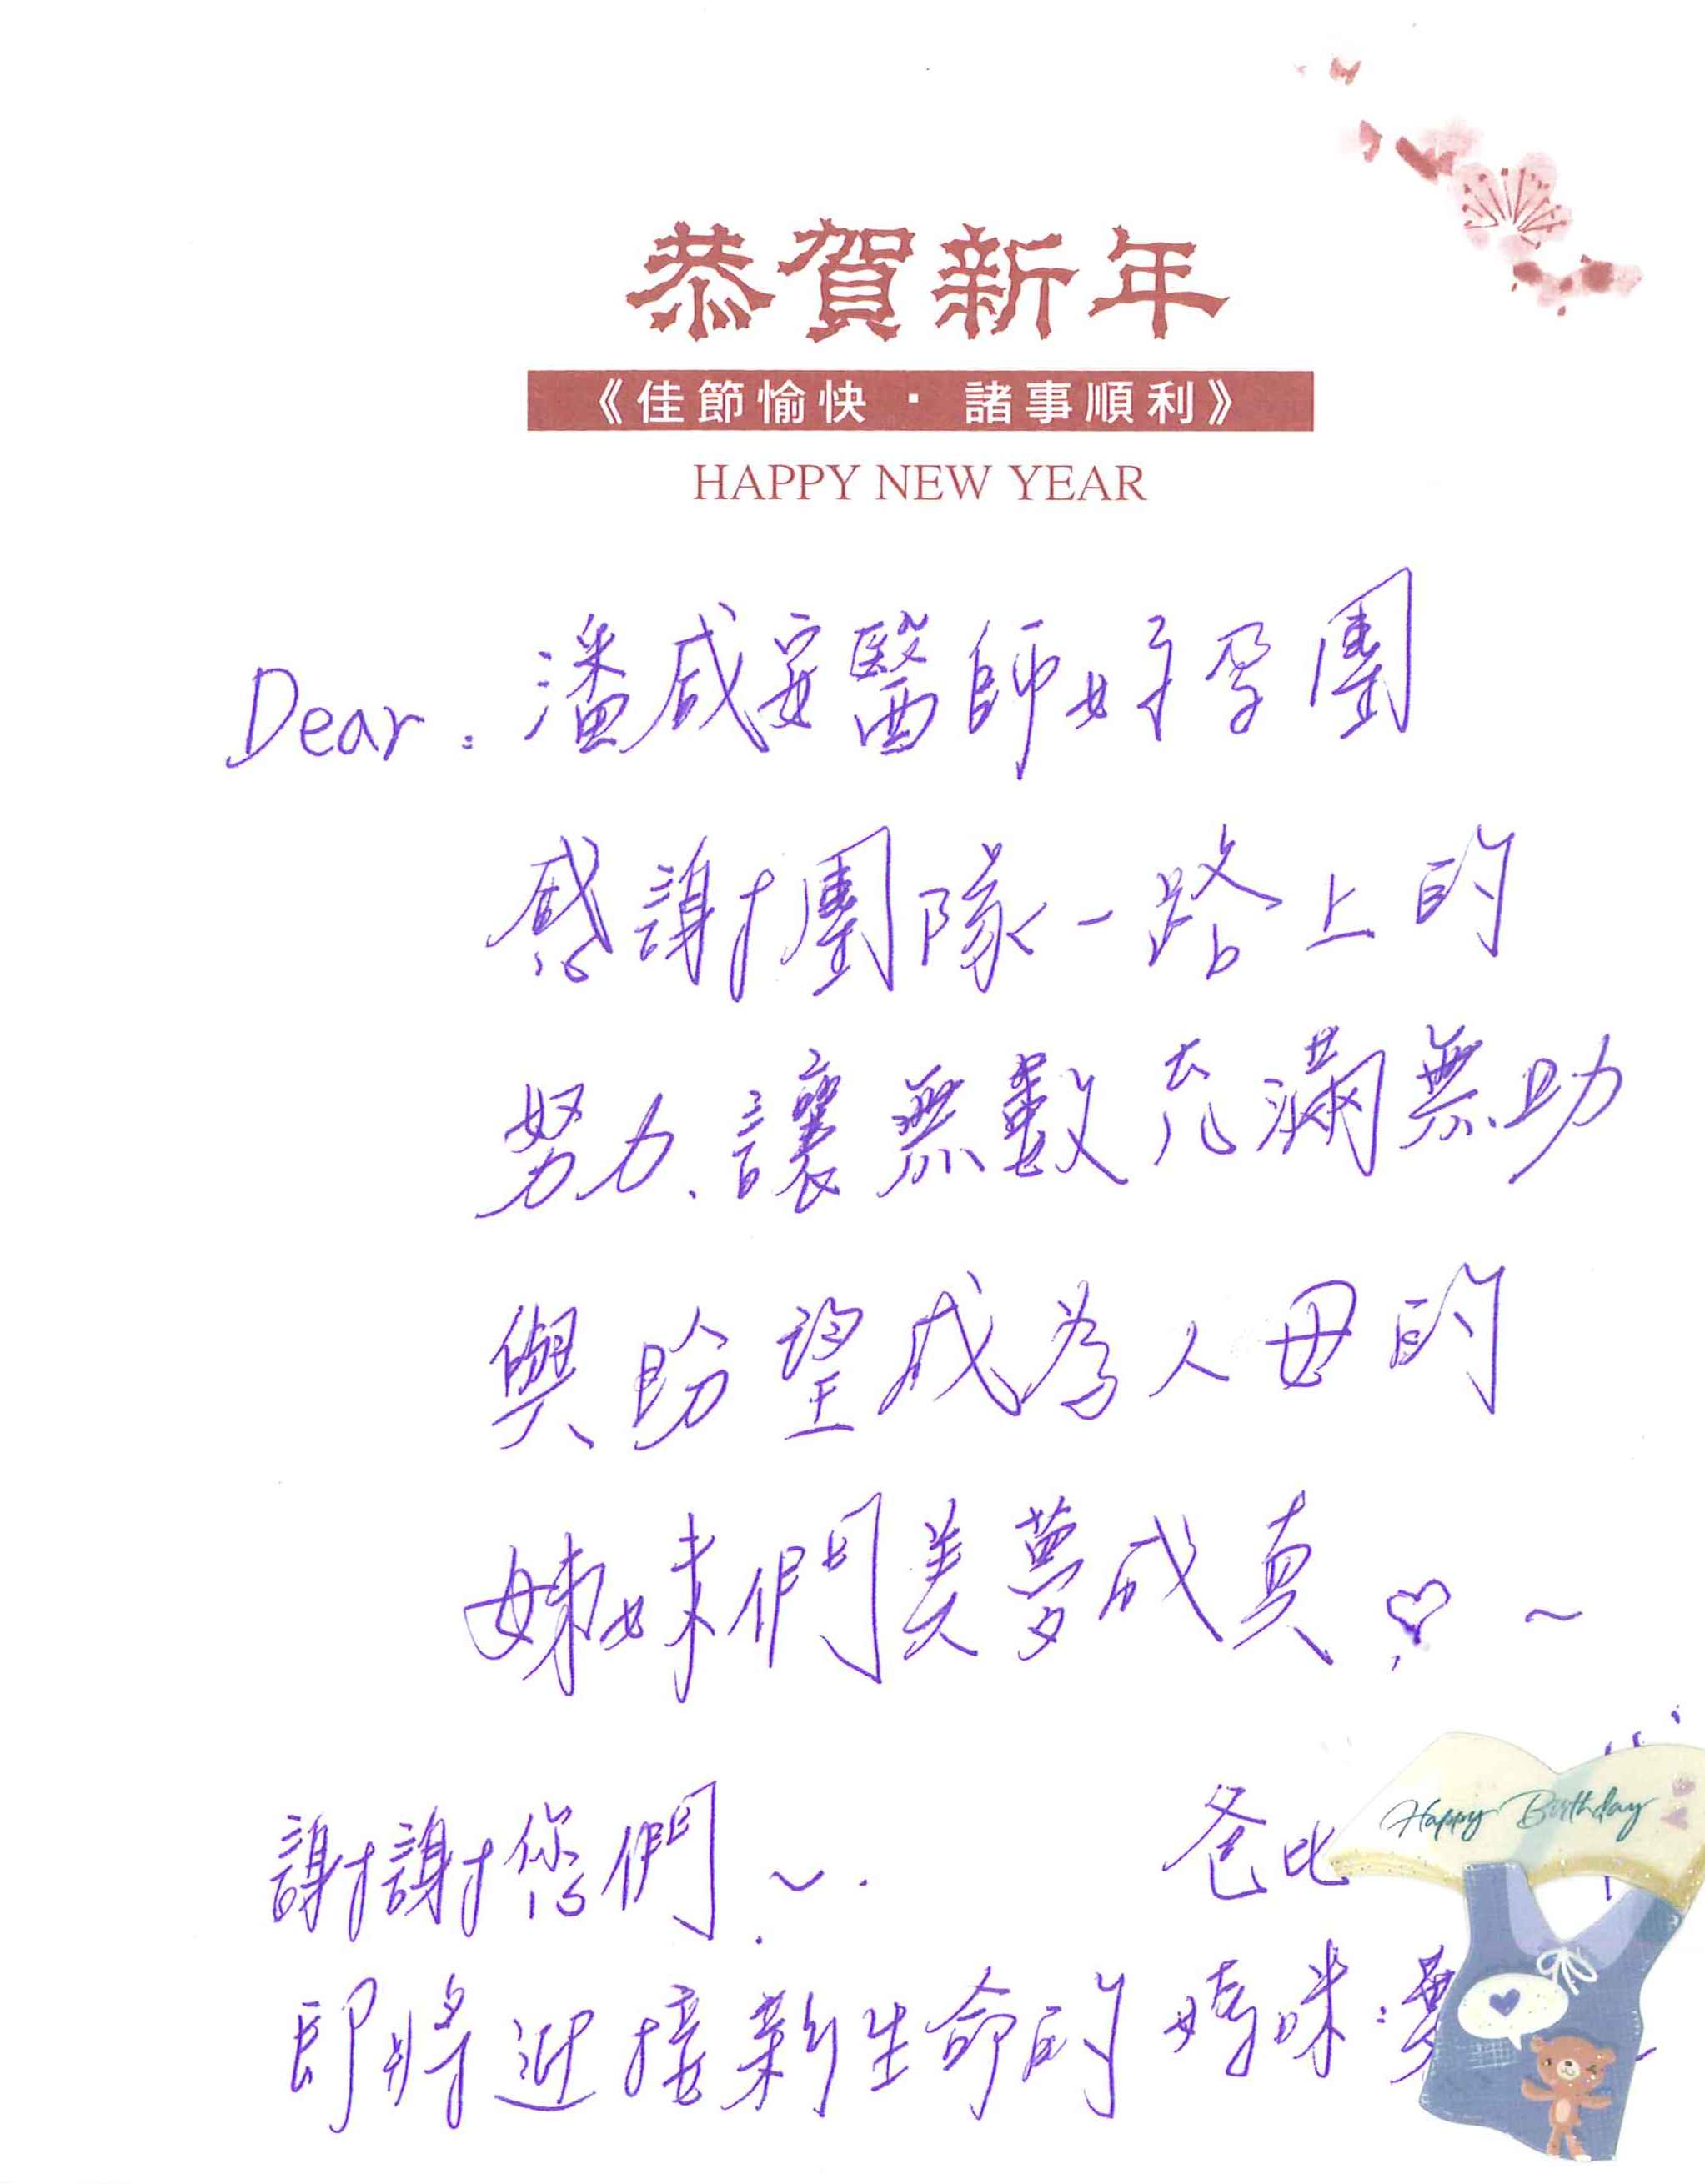 恭賀新年
《佳節愉快 · 諸事順利》
HAPPY NEW YEAR
Dear: 潘咸安醫師好孕團
感謝團隊一路上的
努力、讓無數充滿無助
與盼望成為人母的
姊妹們美夢成真♡~
謝謝您們~.
爸比
Happy Birthday
即將迎接新生命的媽咪: